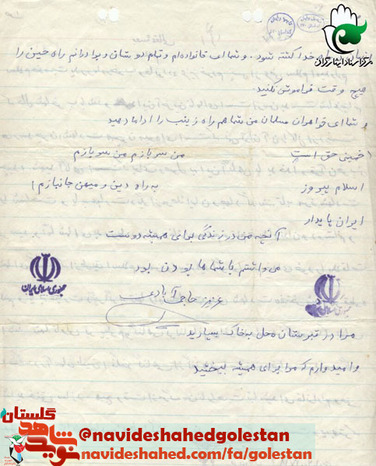 خدا کشته شود. و شما ای خانواده‌ام و تمام دوستان و برادرانم راه حسین را
هیچ وقت فراموش نکنید.
و شما ای خواهران مسلمان من شما هم راه زینب را ادامه دهید
خمینی حق است من سربازم من سربازم
اسلام پیروز به راه دین و میهن جانبازم
ایران پایدار
آنچه من در زندگی برای همیشه دوست
می‌داشتم با شماها بودن بود
عزیز حاجی آبادی
جمهوری اسلامی ایران
جمهوری اسلامی ایران
مرا در قبرستان محل به خاک بسپارید
و امیدوارم که مرا برای همیشه ببخشید
نوید شاهد گلستان
@navideshahedgolestan
navideshahed.com/fa/golestan